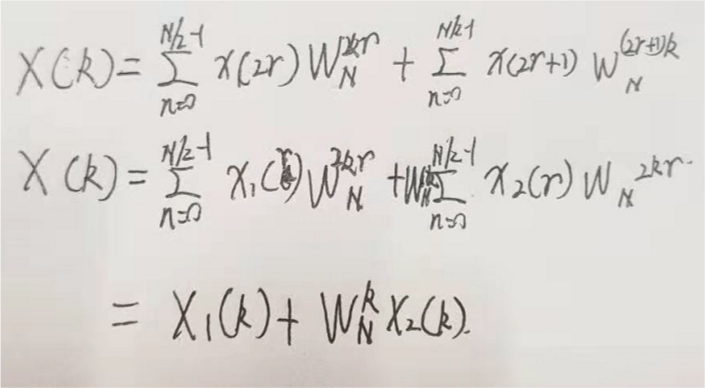 X(k)= \sum_{n=0}^{N/2-1} x(2r) W_N^{2kr} + \sum_{n=0}^{N/2-1} x(2r+1) W_N^{(2r+1)k}
X(k)= \sum_{n=0}^{N/2-1} x_1(r) W_N^{2kr} + W_N^k \sum_{n=0}^{N/2-1} x_2(r) W_N^{2kr}
= X_1(k)+ W_N^k X_2(k).